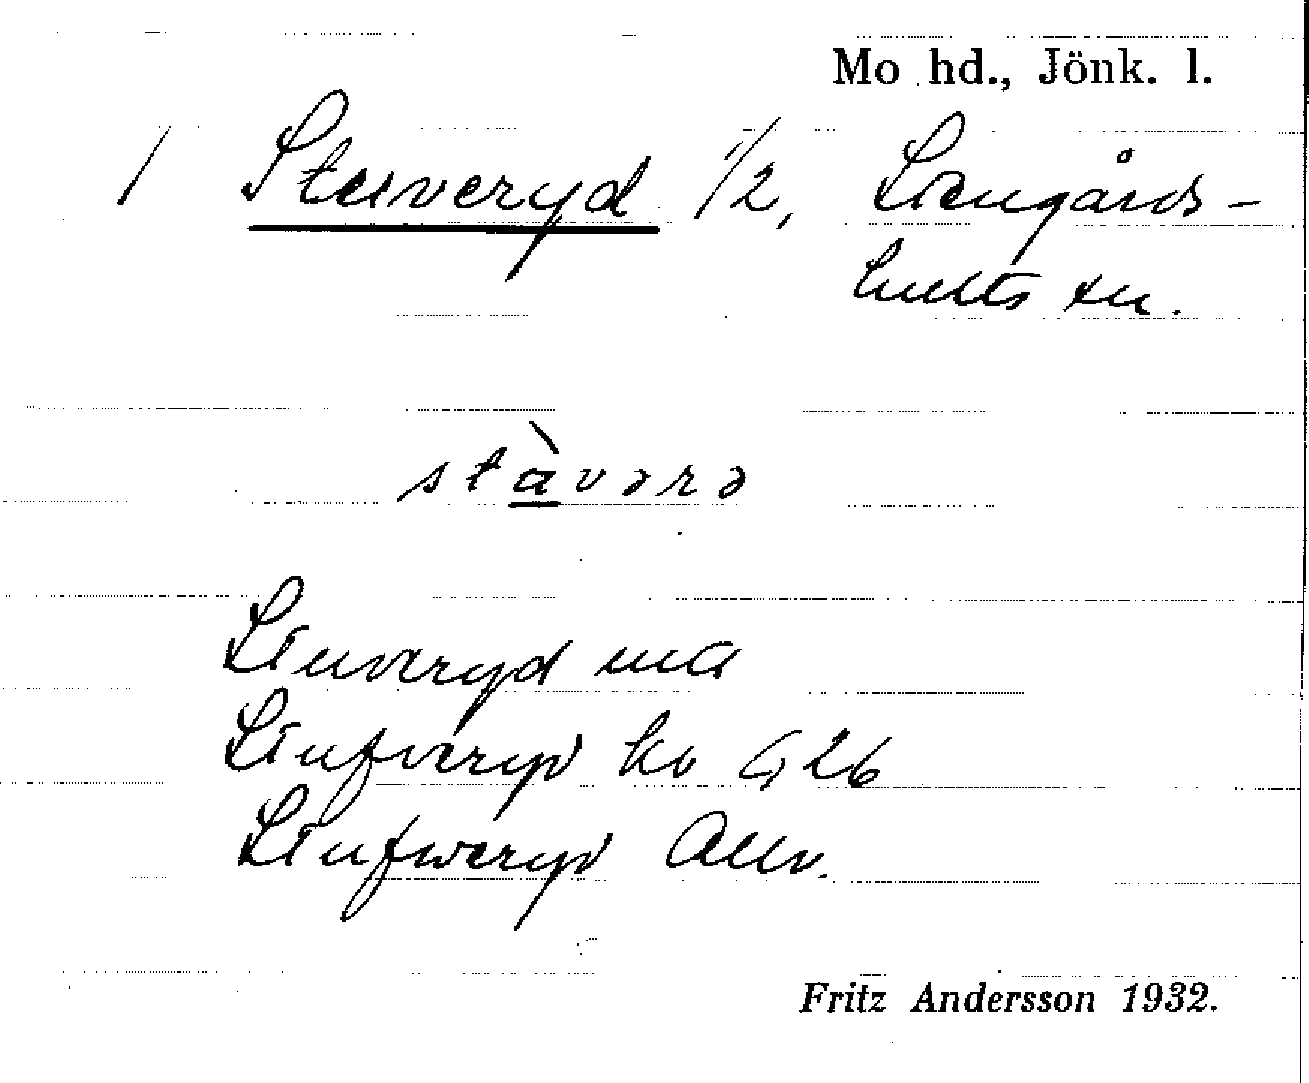 Mo hd., Jönk. l.
1 Stuveryd 1/2, Stengårds-
hults sn.
stàvərə
Stuveryd
Stufveryd kv G 26
Stufweryd Allm.
Fritz Andersson 1932.